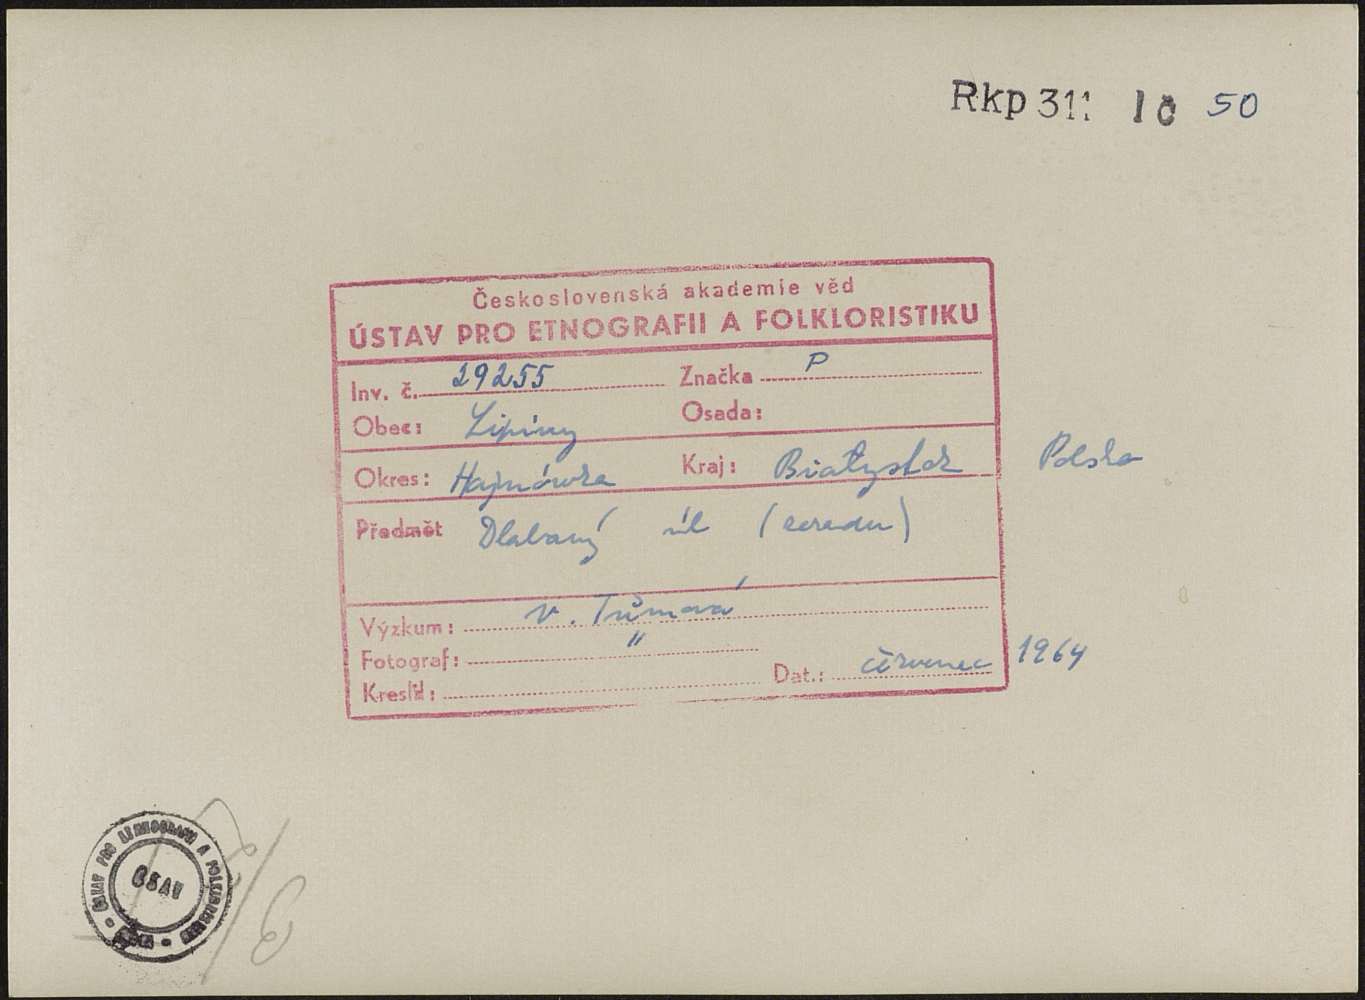 Rkp 311 IČ 50
Československá akademie věd
ÚSTAV PRO ETNOGRAFII A FOLKLORISTIKU
Inv. č. 29255 Značka P
Obec: Lipiny Osada:
Okres: Hajnówka Kraj: Białystok Polsko
Předmět Dlabaný úl (zezadu)
Výzkum: V. Tůmová
Fotograf: "
Kreslil: Dat.: červenec 1964
ÚSTAV PRO ETNOGRAFII A FOLKLORISTIKU
ČSAV